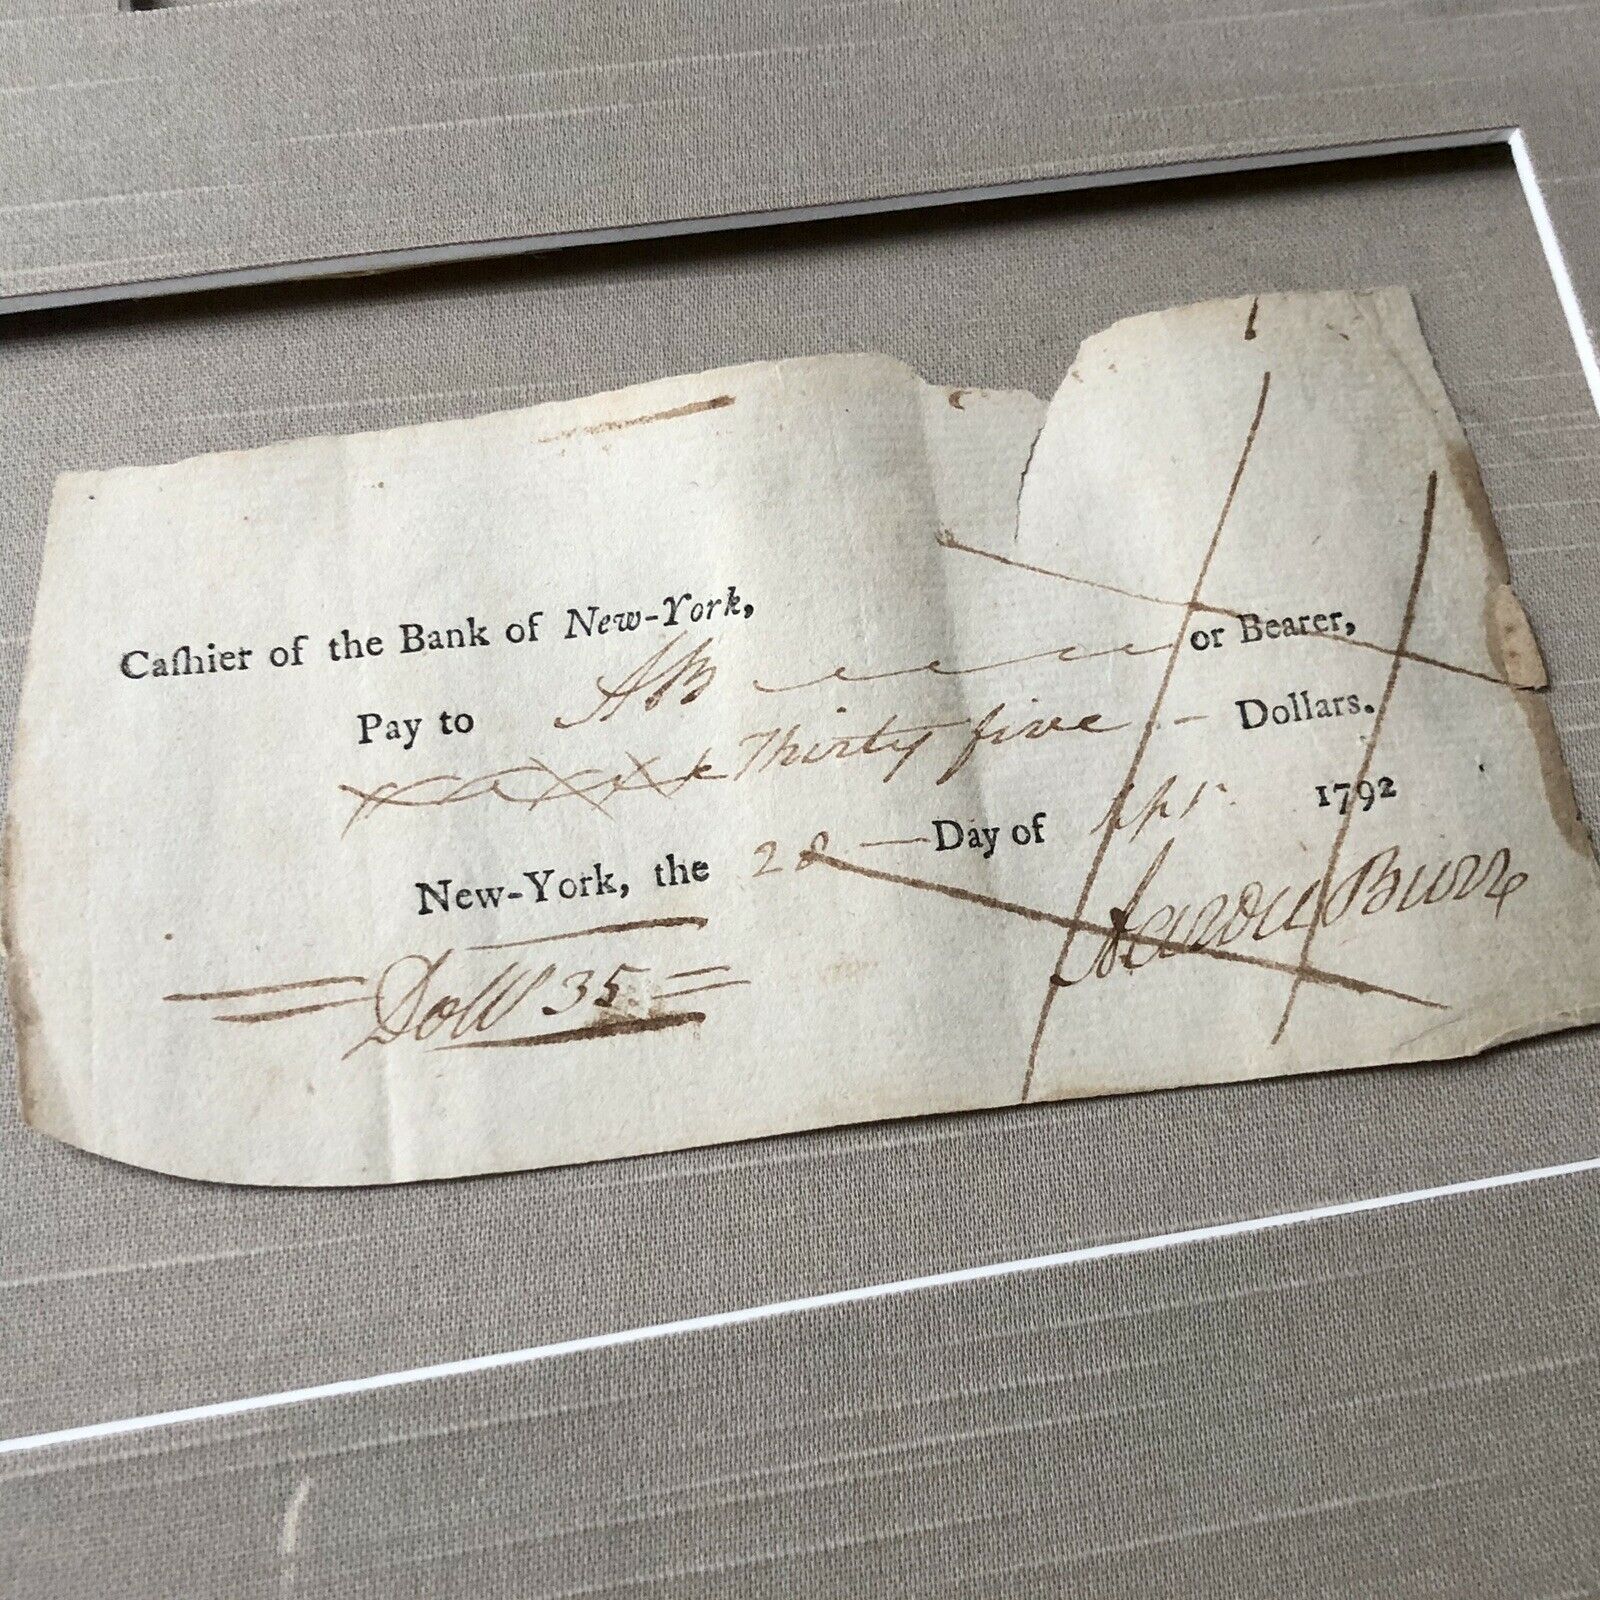 Caſhier of the Bank of New-York,
Pay to AB or Bearer,
Thirty five Dollars.
New-York, the 28 Day of Apr 1792
Aaron Burr
Doll 35